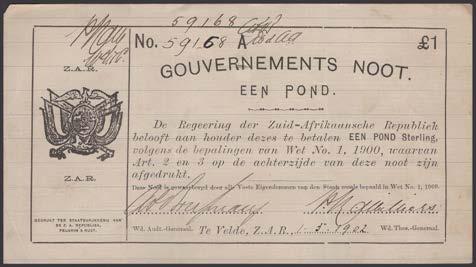 59168
No. 59168 A
£1
Z.A.R.
GOUVERNEMENTS NOOT.
EEN POND.
De Regeering der Zuid-Afrikaansche Republiek
belooft aan houder dezes te betalen EEN POND Sterling,
volgens de bepalingen van Wet No. 1, 1900, waarvan
Art. 2 en 3 op de achterzijde van deze noot zijn
afgedrukt.
Deze Noot is gewaarborgd door alle Vaste Eigendommen van den Staat, zooals bepaald in Wet No. 1, 1900.
Z.A.R.
GEDRUKT TER STAATSDRUKKERIJ VAN
DE Z. A. REPUBLIEK,
PELGRIM'S RUST.
Wd. Audt.-Generaal.
Te Velde, Z.A.R., 1-5-1902
Wd. Thes.-Generaal.